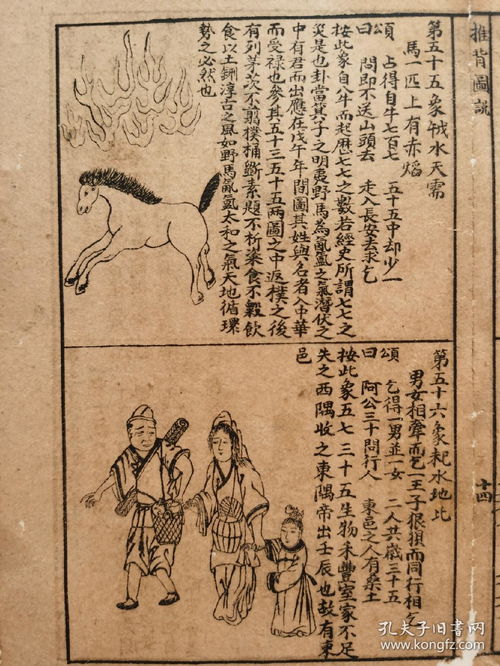 推背圖說
第五十五象 水天需
馬一匹上有赤熖
頌 占得自牛七百七 五十五中却少一
曰 問即不送山頭去 走入長安去求乞
按此象自八牛而起歷七七之數若經史所謂七七之
災是也卦當箕子之明夷野馬為氤氳之氣潛伏之
中有君而出應在戊午年間圖其姓與名者入中華
而受禄也參其五十三五十五兩圖之中返樸之後
有列茅茨不翦樸桷斵素題不枅粢食不毇飲
食以土鉶淳古之風如野馬氤氳太和之氣天地循環
勢之必然也
第五十六象 水地比
男女相聾而乞王子狠狽而同行相乞
頌 乞得一男並一女 二人共歲三十五
曰 阿公三十問行人 東邑之人有桑土
按此象五七三十五生物未豐室家不足
失之西隅收之東隅帝出壬辰也故有東
邑
十四
孔夫子旧书网
www.kongfz.com